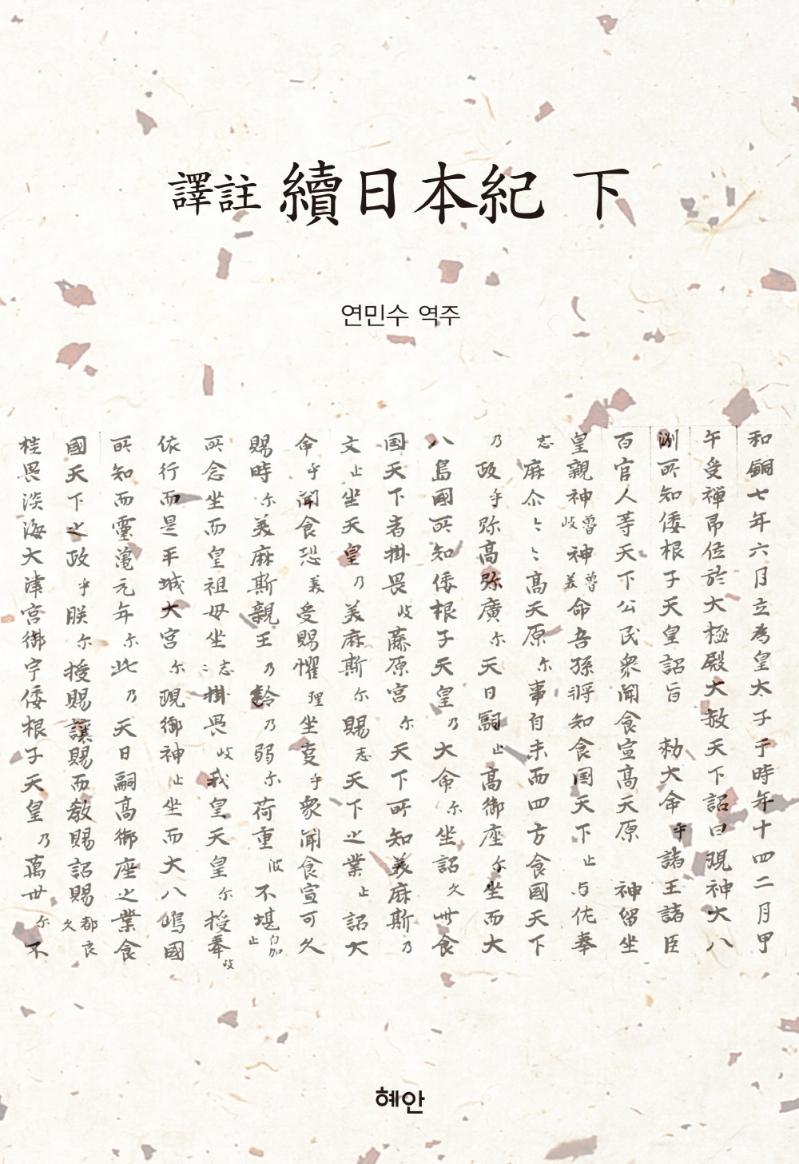 譯註 續日本紀 下
연민수 역주
和銅七年六月立為皇太子于時年十四二月甲
午受禪即位於大極殿大赦天下詔曰現神大八
洲所知倭根子天皇詔旨 勅大命乎諸王諸臣
百官人等天下公民衆聞食宣高天原 神留坐
皇親神魯岐神魯美命吾孫將知食国天下止与佐奉
志麻尓々々高天原尓事自未而四方食國天下
乃政乎弥高弥廣尓天日嗣止高御座尓坐而大
八島國所知倭根子天皇乃大命尓坐詔久此食
国天下者掛畏岐藤原宮尓天下所知美麻斯乃
文止坐天皇乃美麻斯尓賜志天下之業止詔大
命乎聞食恐美受賜懼理坐事乎衆聞食宣可久
賜時尓美麻斯親王乃齡乃弱尓荷重波不堪自加止
所念坐而皇祖母坐志々掛畏岐我皇天皇尓授奉岐
依行而是平城大宮尓現御神止坐而大八嶋國
所知而靈龜元年尓此乃天日嗣高御座之業食
國天下之政乎朕尓授賜讓賜而教賜詔賜都良久
桂畏淡海大津宮御宇倭根子天皇乃萬世尓不
혜안